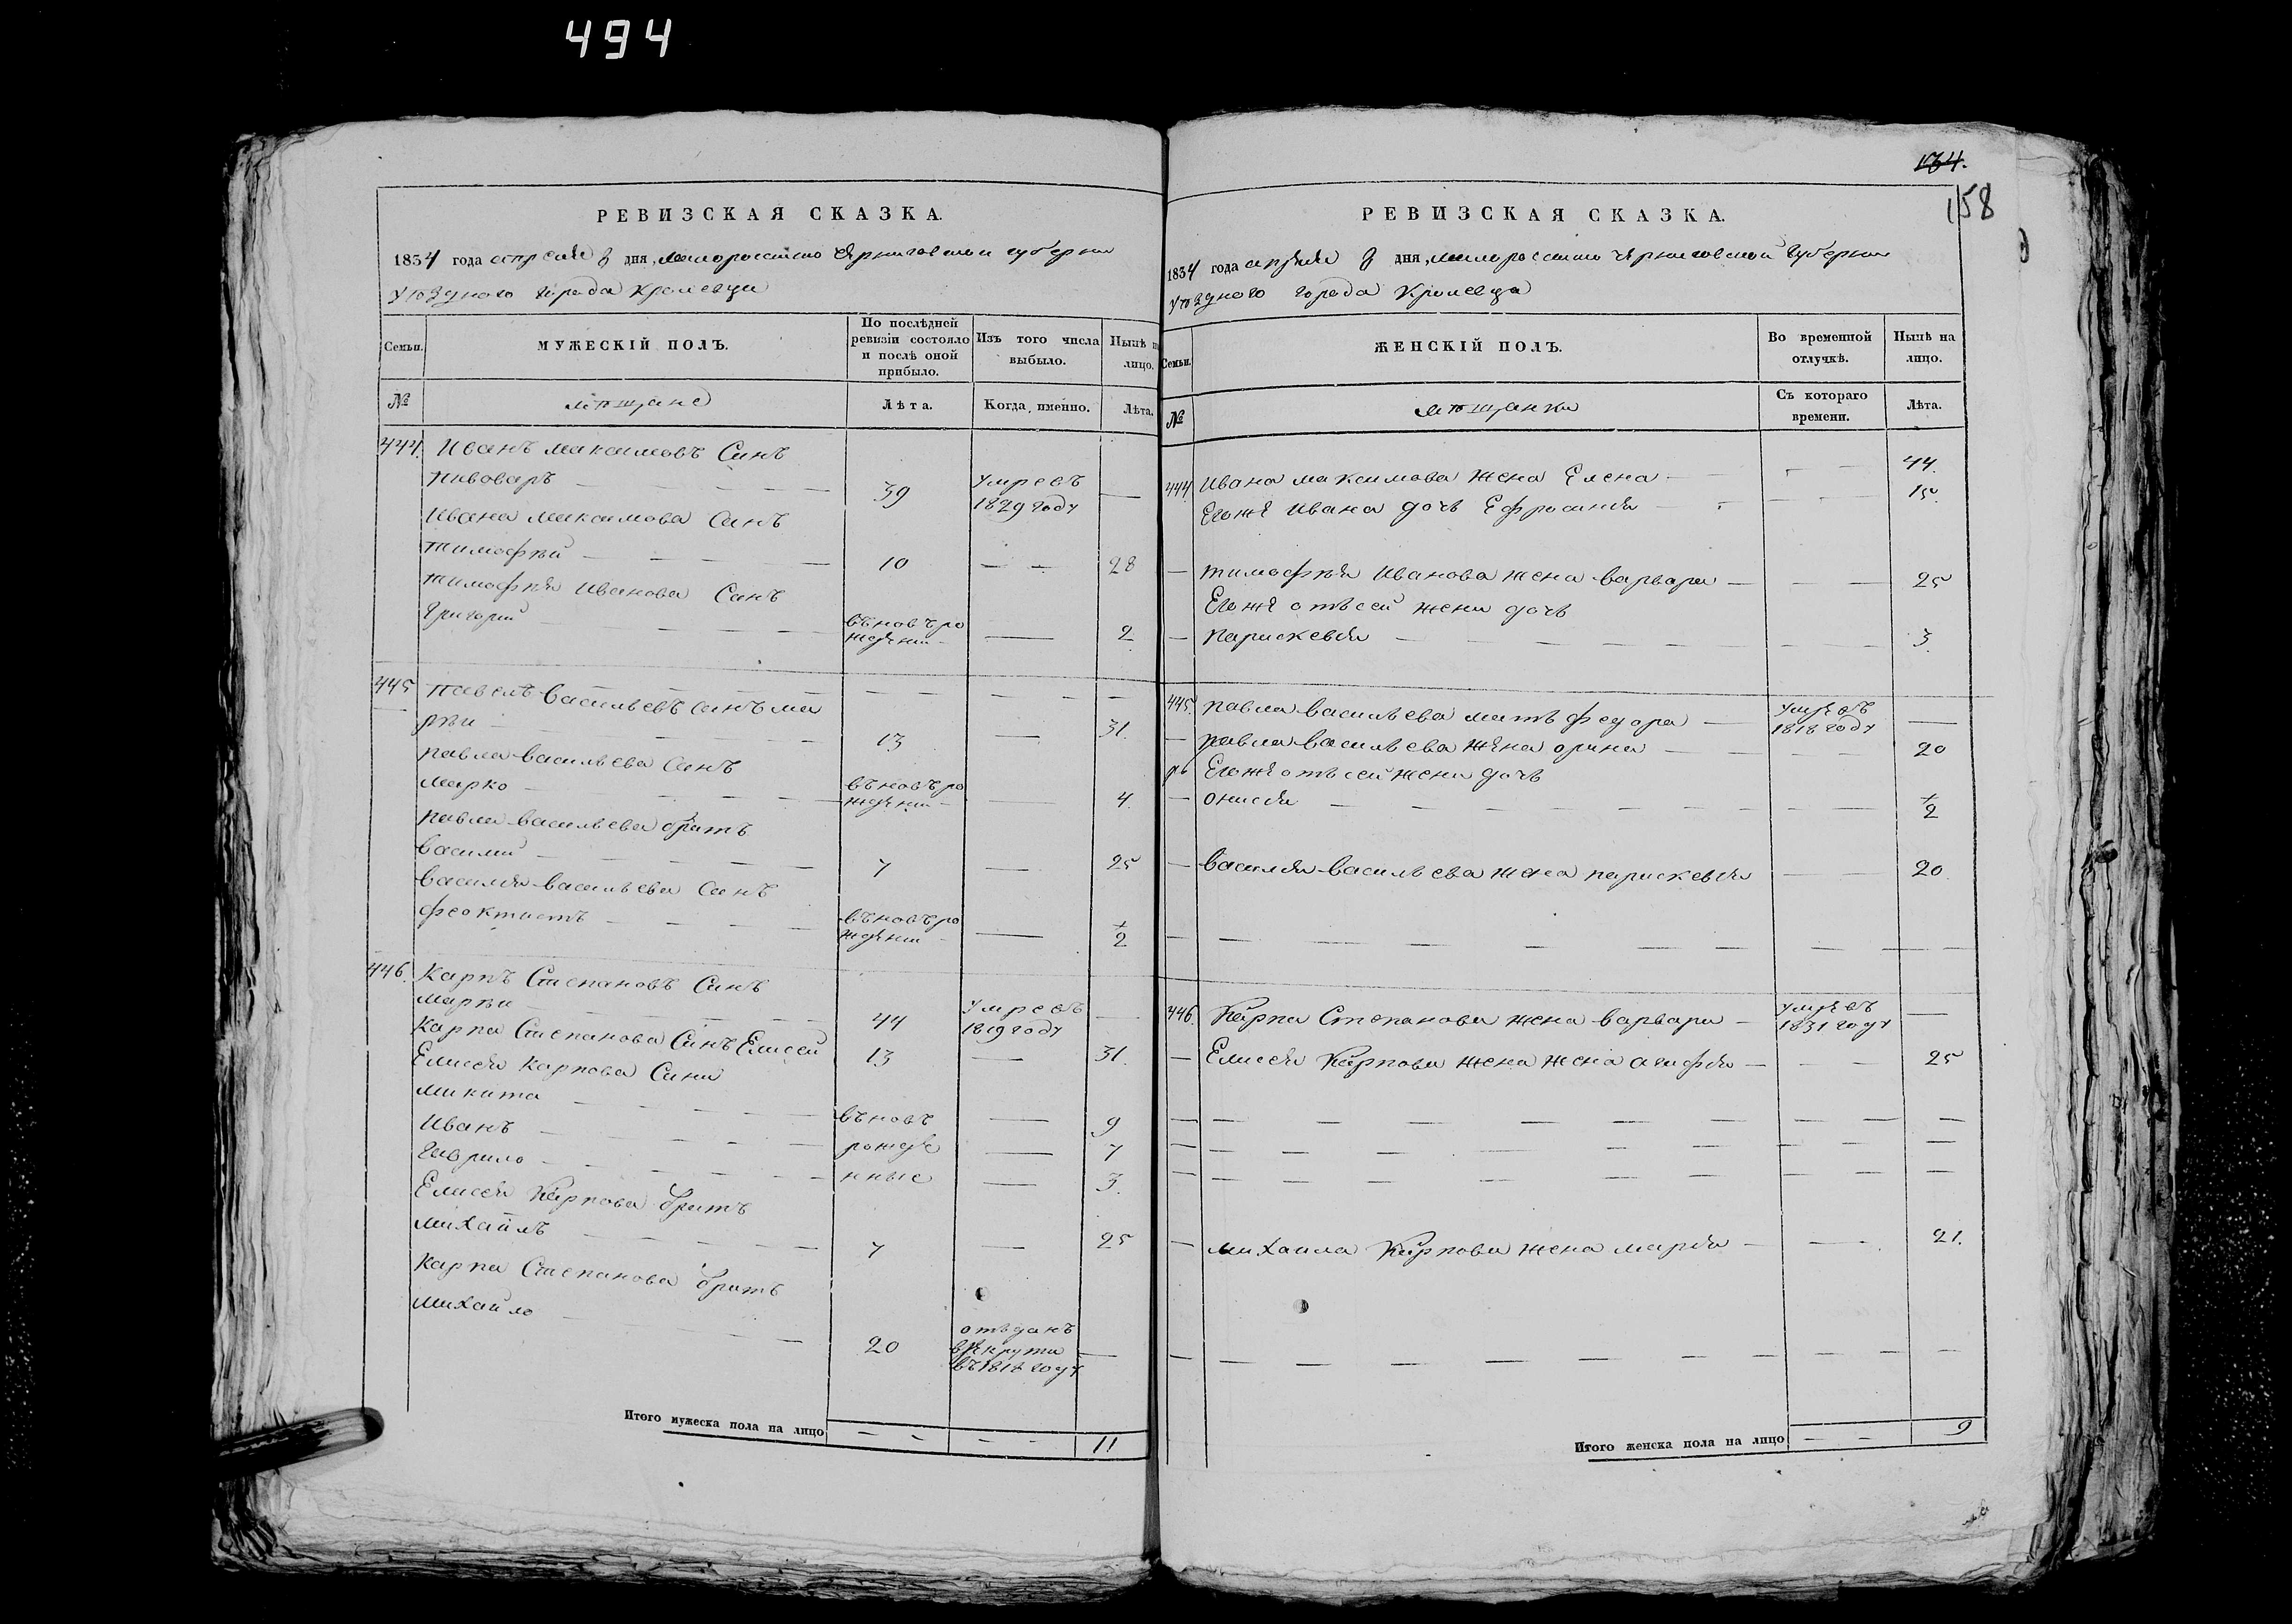 494
РЕВИЗСКАЯ СКАЗКА.
1834 года апреля дня, малоросийско Черниговской губернии
уѣздного города Кролевца
Семьи.
МУЖЕСКІЙ ПОЛЪ.
По послѣдней ревизіи состояло и послѣ оной прибыло.
Изъ того числа выбыло.
Нынѣ на лицо.
№
мѣщане
Лѣта.
Когда именно.
Лѣта.
444. Иванъ Максимовъ Синъ
Пивоваръ — 39 умревъ 1829 году —
Ивана Максимова Синъ
Тимофѣй — 10 — — 28
Тимофѣя Иванова Синъ
Григорий — вѣновъ рожденни — — 2
445 Павелъ Васильевъ Синъ Ма
рѣи — 13 — 31.
Павла Васильева Синъ
Марко — вѣновъ рожденни — — 4
Павла Васильева братъ
Василий — 7 — 25
Василия Васильева Синъ
Феоктистъ — вѣновъ рожденни — — 1/2
446. Карпъ Степановъ Синъ
Марѣи — 44 умревъ 1819 году —
Карпа Степанова Синъ Елисей 13 — 31.
Елисея Карпова Сини
Микита — вѣновъ — 9
Иванъ — рожде — 7
Гаврило — нные — 3.
Елисея Карпова братъ
Михаилъ — 7 — 25
Карпа Степанова братъ
Михайло — 20 отъданъ в рекруты въ 1818 году —
Итого мужеска пола на лицо — — — — 11
134.
158
РЕВИЗСКАЯ СКАЗКА.
1834 года апреля дня, малоросийско Черниговской губернии
уѣздного города Кролевца
Семьи.
ЖЕНСКІЙ ПОЛЪ.
Во временной отлучкѣ.
Нынѣ на лицо.
№
мѣщанки
Съ котораго времени.
Лѣта.
444 Ивана Максимова жена Елена — — 44.
Егоже Ивана дочь Ефросиния — — 15
— Тимофѣя Иванова жена Варвара — — 25
Егоже отъсей жени дочь
— Параскевия — — 3.
445. Павла Васильева мать Федора — умревъ 1818 году —
— Павла Васильева жена Орина — — 20
Егоже отъсей жени дочь
— Онисия — — 1/2
— Василия Васильева жена Параскевия — — 20
446. Карпа Степанова жена Варвара — умревъ 1831 году —
— Елисея Карпова жена жена Агафия — — 25
— Михаила Карпова жена Мария — — 21.
Итого женска пола на лицо — — 9